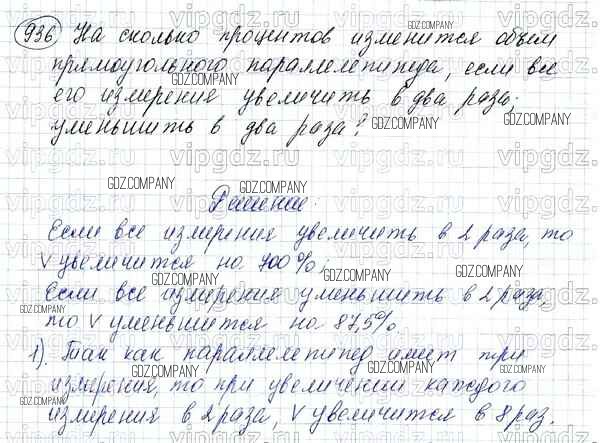 936 На сколько процентов изменится объем
прямоугольного параллелепипеда, если все
его измерения увеличить в два раза;
уменьшить в два раза?
Решение.
Если все измерения увеличить в 2 раза, то
V увеличится на 700%;
Если все измерения уменьшить в 2 раза,
то V уменьшится на 87,5%.
1). Так как параллелепипед имеет три
измерения, то при увеличении каждого
измерения в 2 раза, V увеличится в 8 раз.